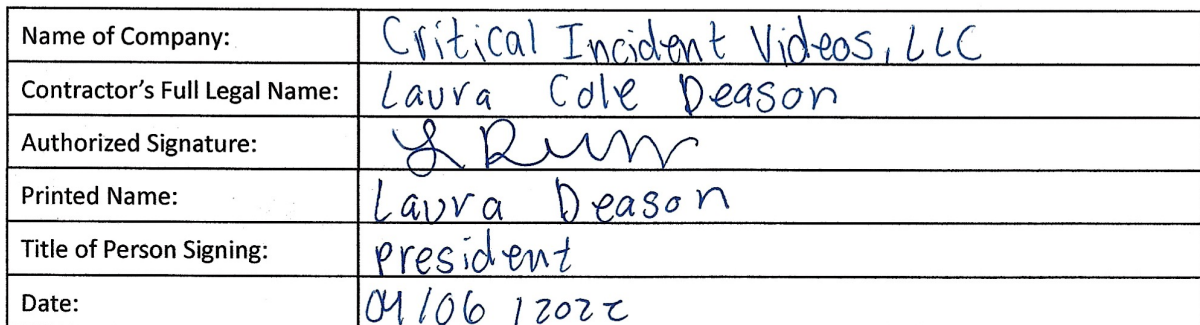 Name of Company: Critical Incident Videos, LLC
Contractor's Full Legal Name: Laura Cole Deason
Authorized Signature:
Printed Name: Laura Deason
Title of Person Signing: president
Date: 04/06/2022